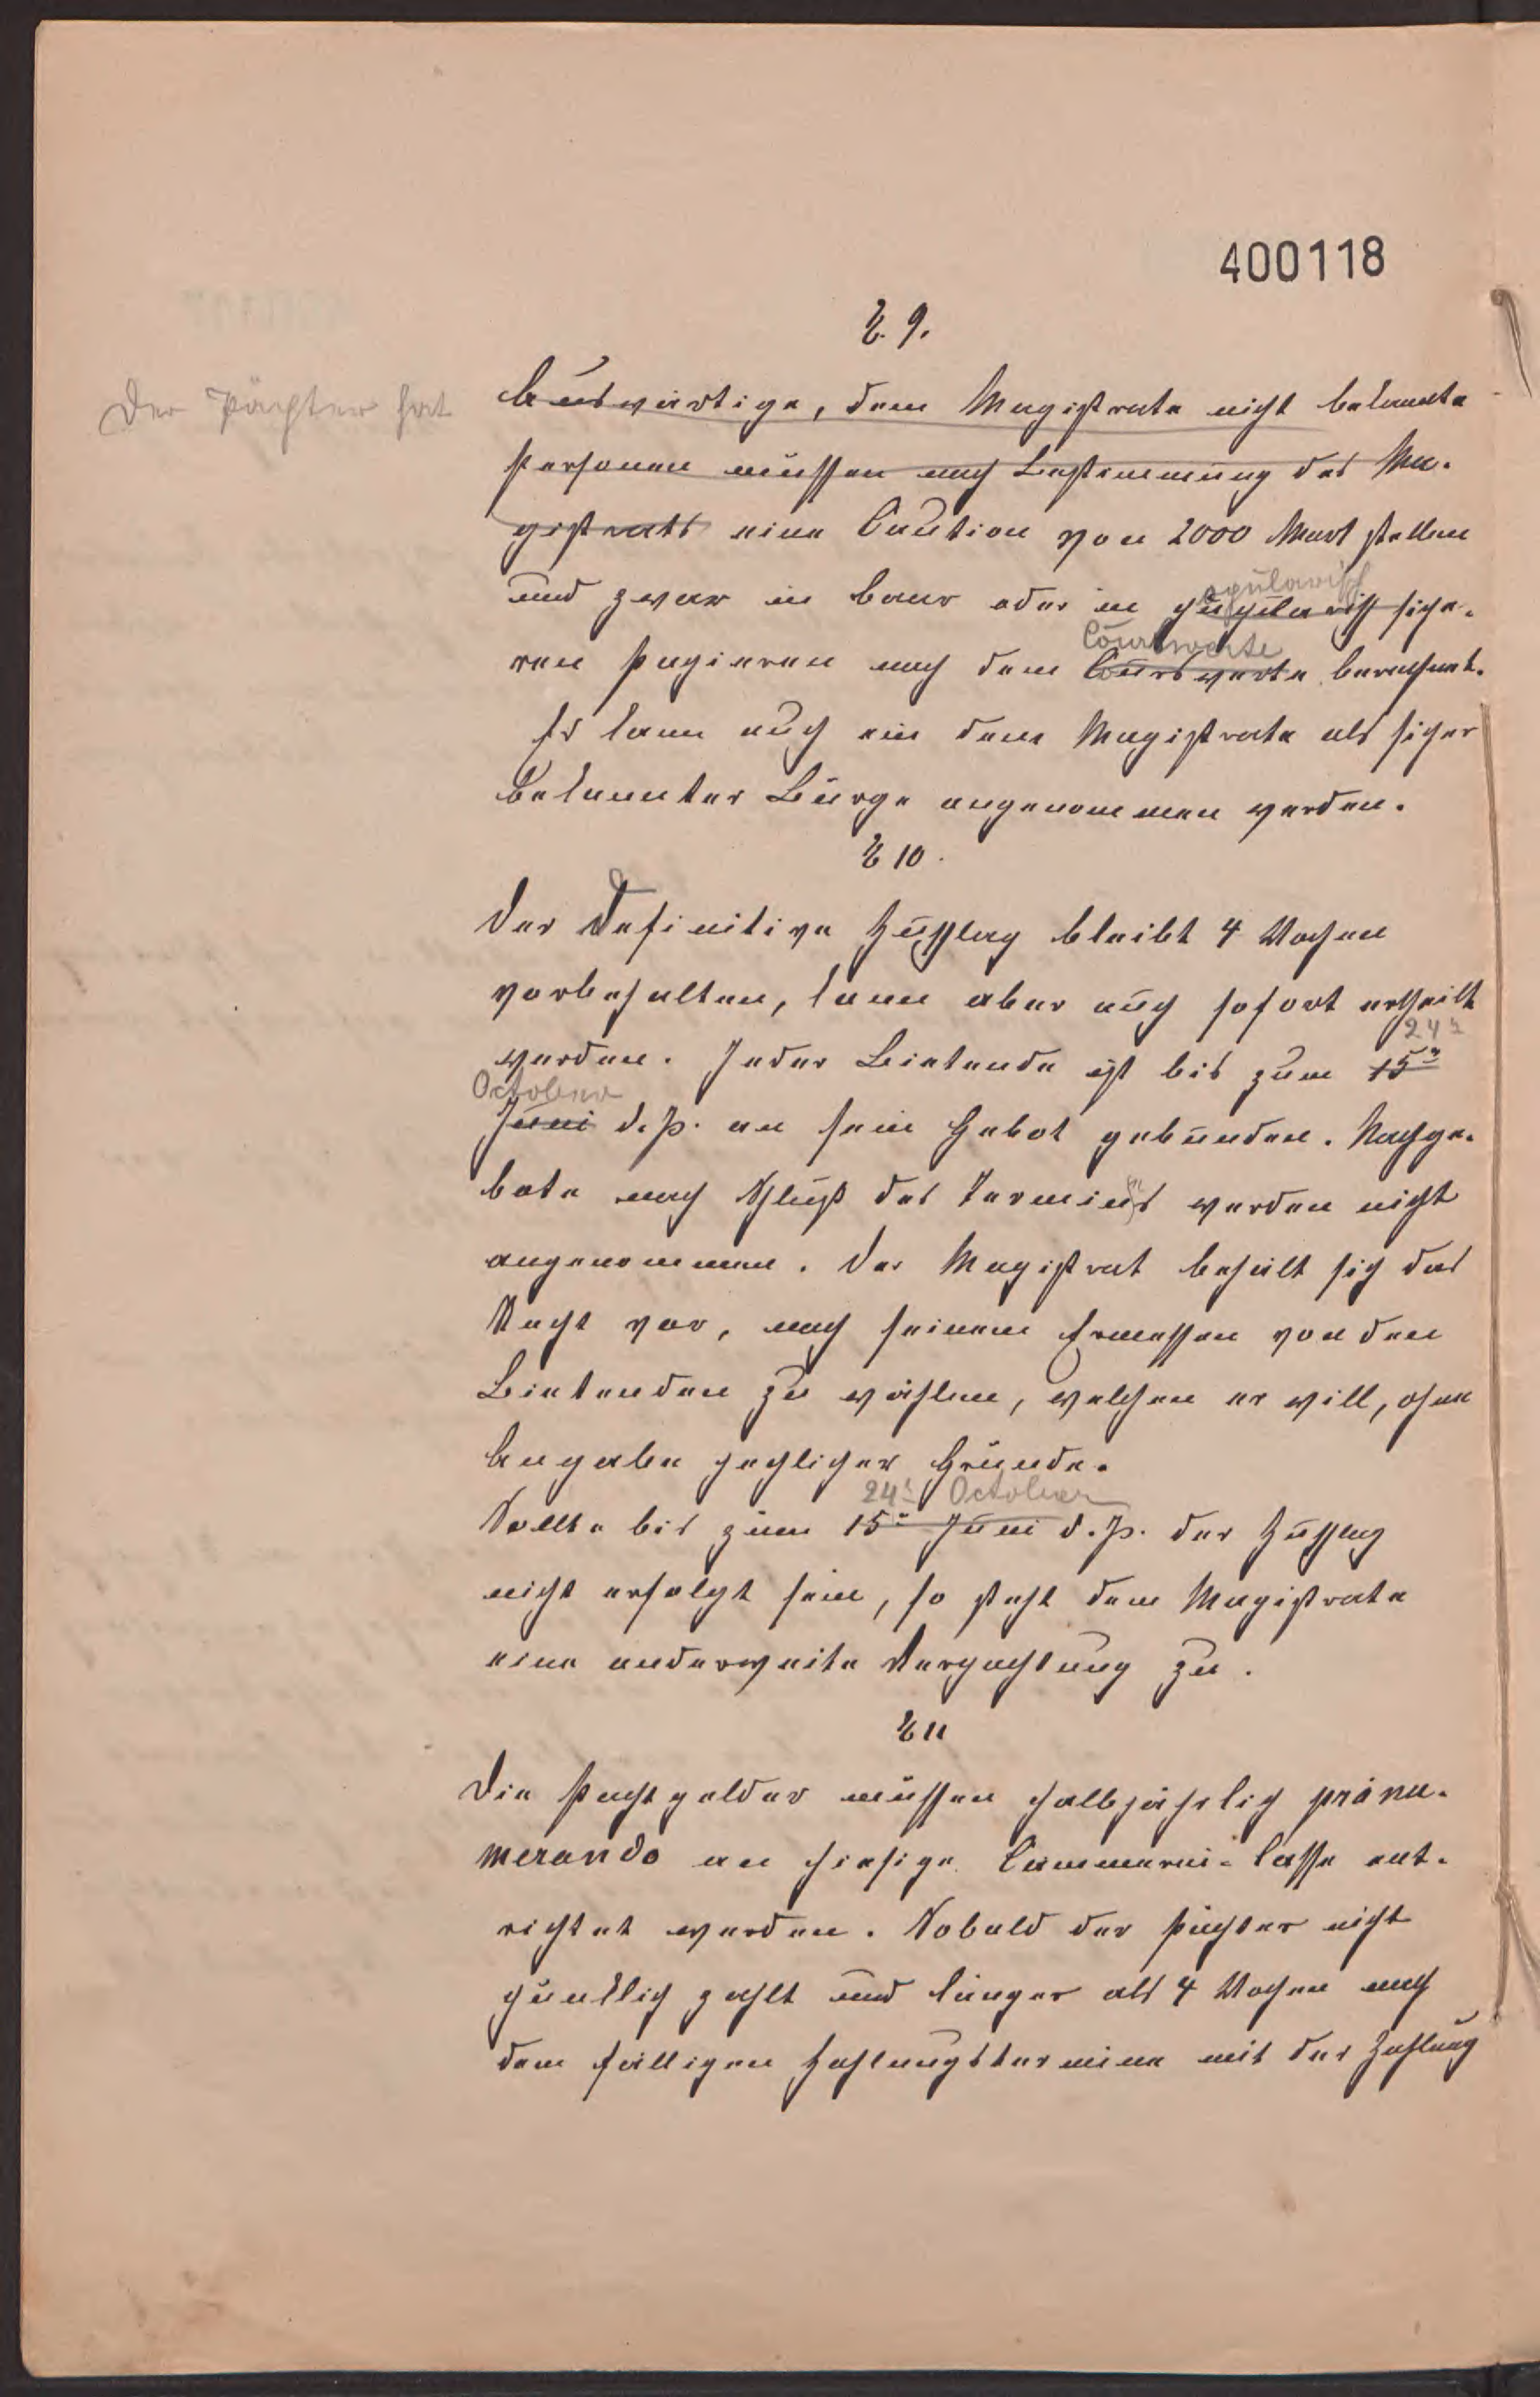 400118
§. 9.
Der Pächter hat
Auswärtige, dem Magistrate nicht bekannte
Personen müssen nach Bestimmung des Ma-
gistrats eine Caution von 2000 Mark stellen
pupilarisch
und zwar in baar oder in pupilarisch siche-
Courswerte
ren Papieren nach dem Courswerte berechnet.
Es kann auch ein dem Magistrate als sicher
bekannter Bürge angenommen werden.
§ 10.
Der Definitive Zuschlag bleibt 4 Wochen
vorbehalten, kann aber auch sofort ertheilt
24n
werden. Jeder Bietende ist bis zum 15n
October
Juni d. Js. an sein Gebot gebunden. Nachge-
bote nach Schluß des Termins werden nicht
angenommen. Der Magistrat behält sich das
Recht vor, nach seinem Ermessen von den
Bietenden zu wählen, welchen er will, ohne
Angabe jeglicher Gründe.
24n October
Sollte bis zum 15n Juni d. Js. der Zuschlag
nicht erfolgt sein, so steht dem Magistrate
eine anderweite Verpachtung zu.
§ 11
Die Pachtgelder müssen halbjährlich pränu-
merando an hiesige Cämmerei-Casse ent-
richtet werden. Sobald der Pächter nicht
pünktlich zahlt und länger als 4 Wochen nach
dem fälligen Zahlungstermine mit der Zahlung